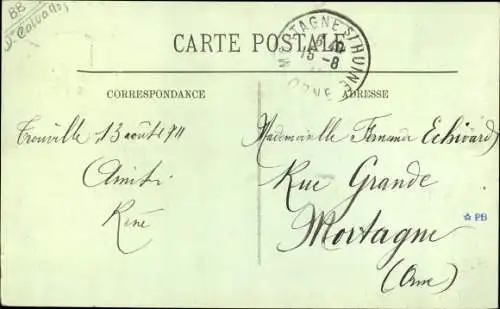 88
D. Calvados
CARTE POSTALE
MORTAGNE S/ HUINE
15-8
ORNE
CORRESPONDANCE
ADRESSE
Trouville, 13 août 1911
Amitié
René
Mademoiselle Fernande Echivard
Rue Grande
Mortagne
(Orne)
☆ PB